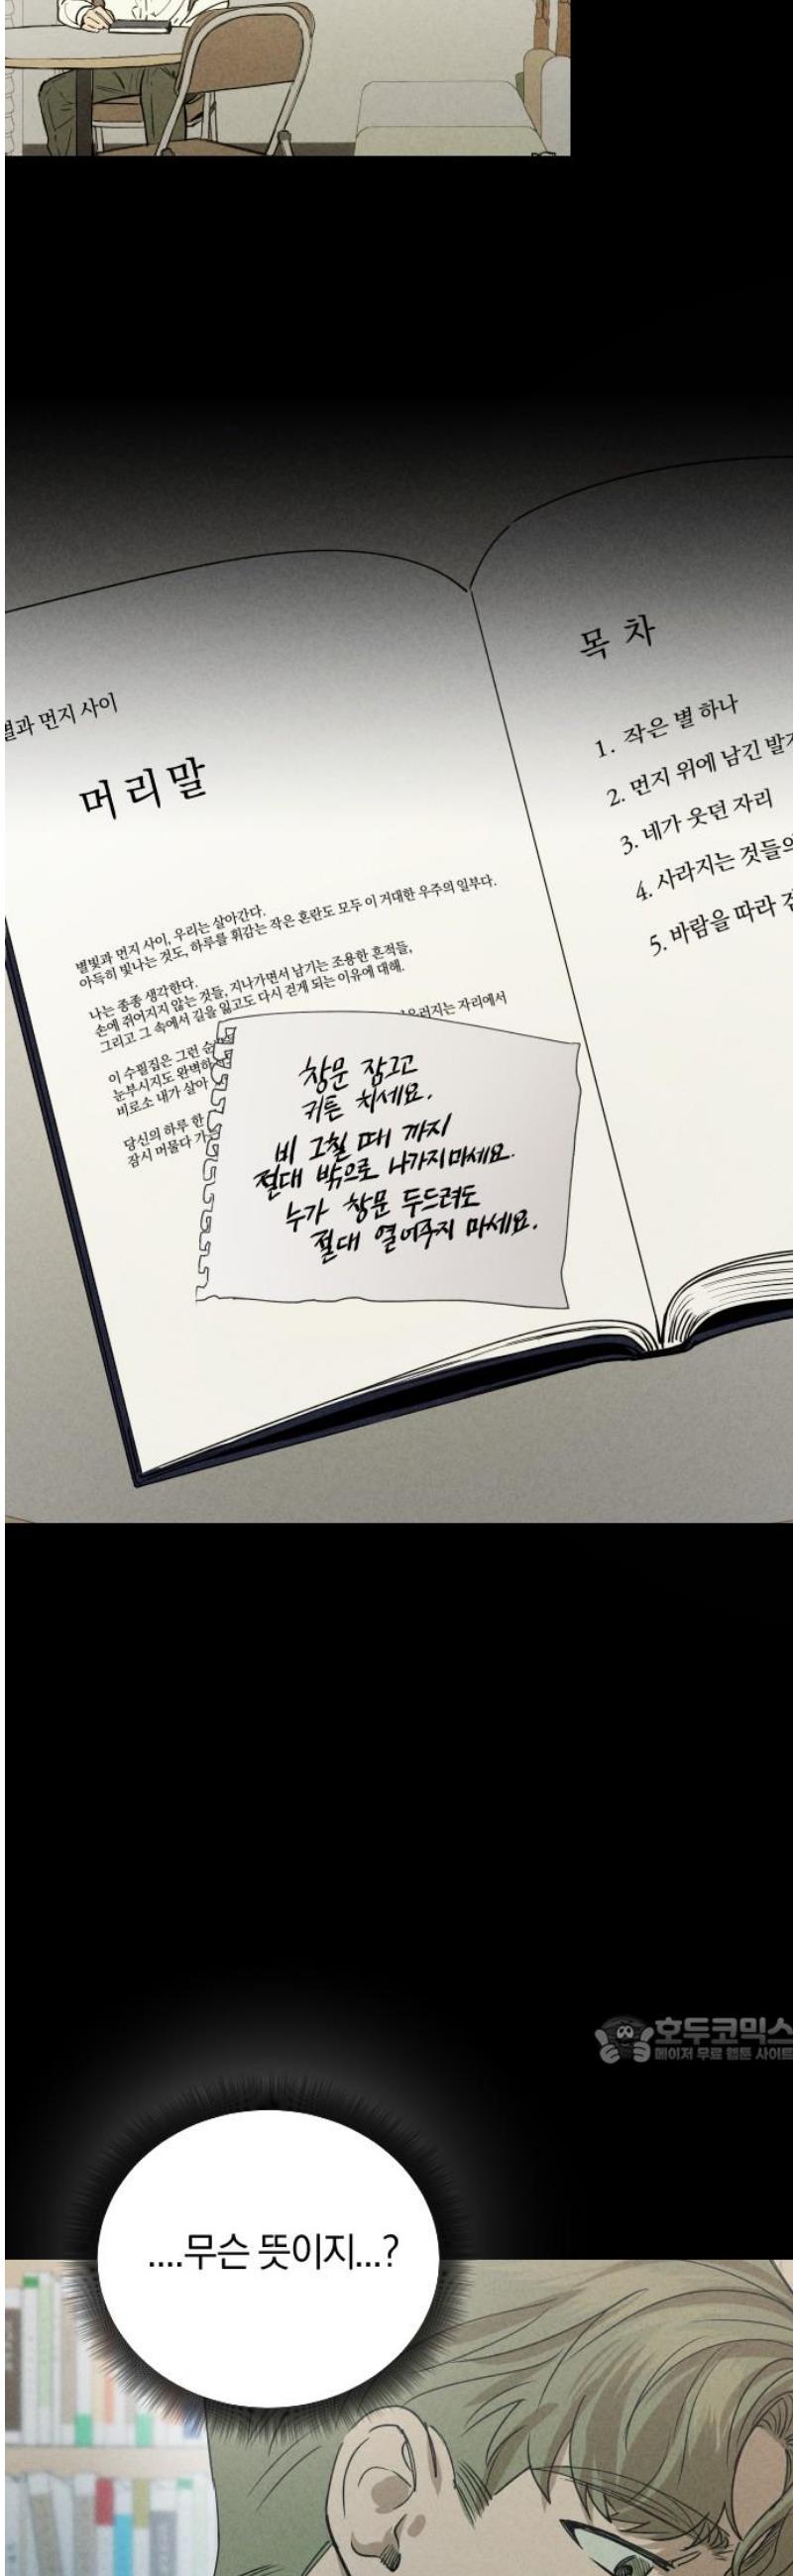 별과 먼지 사이
머리말
별빛과 먼지 사이, 우리는 살아간다.
아득히 빛나는 것도, 하루를 휘감는 작은 혼란도 모두 이 거대한 우주의 일부다.
나는 종종 생각한다.
손에 쥐어지지 않는 것들, 지나가면서 남기는 조용한 흔적들,
그리고 그 속에서 길을 잃고도 다시 걷게 되는 이유에 대해.
이 수필집은 그런 자리에서
눈부시지도 완벽하
비로소 내가 살아
당신의 하루 한
잠시 머물다 가
창문 잠그고
커튼 치세요.
비 그칠 때 까지
절대 밖으로 나가지마세요.
누가 창문 두드려도
절대 열어주지 마세요.
목 차
1. 작은 별 하나
2. 먼지 위에 남긴
3. 네가 웃던 자리
4. 사라지는 것들의
5. 바람을 따라
호두코믹스
메이저 무료 웹툰 사이트
....무슨 뜻이지...?